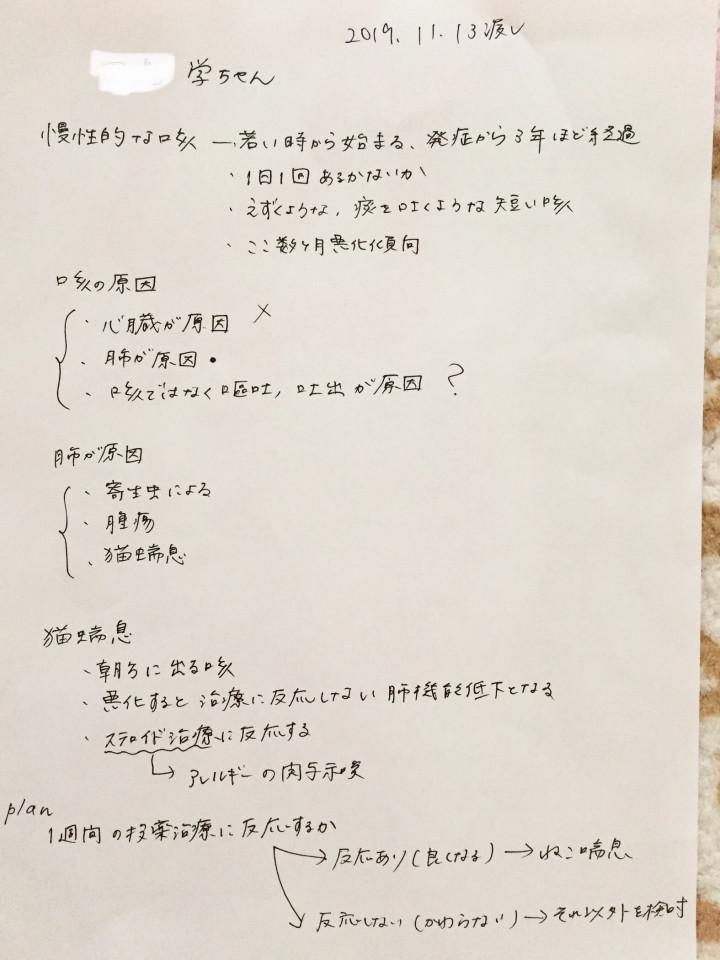 2019.11.13渡し
学ちゃん
慢性的な咳 → 若い時から始まる、発症から3年ほど経過
・1日1回あるかないか
・えずくような、痰を吐くような短い咳
・ここ数ヶ月悪化傾向
咳の原因
・心臓が原因 ×
・肺が原因 ●
・咳ではなく嘔吐,吐出が原因 ?
肺が原因
・寄生虫による
・腫瘍
・猫喘息
猫喘息
・朝方に出る咳
・悪化すると治療に反応しない肺機能低下となる
・ステロイド治療に反応する
→アレルギーの関与示唆
plan
1週間の投薬治療に反応するか
→反応あり(良くなる)→ねこ喘息
→反応しない(かわらない)→それ以外を検討